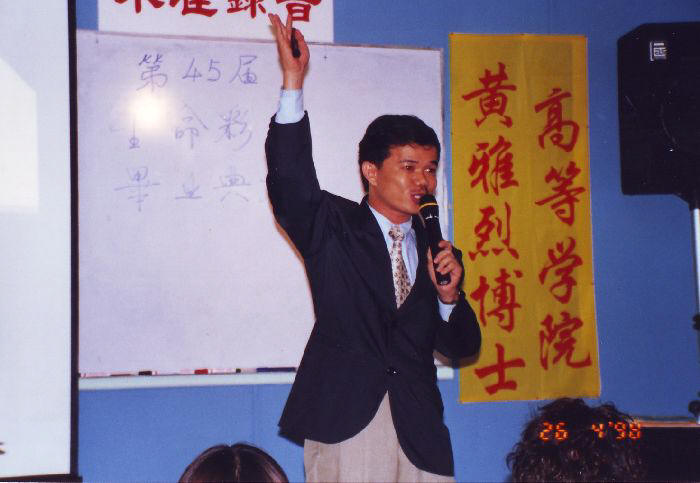 不准錄音
第45届
生命彩
畢业典
高等学院
黄雅烈博士
26 4'98